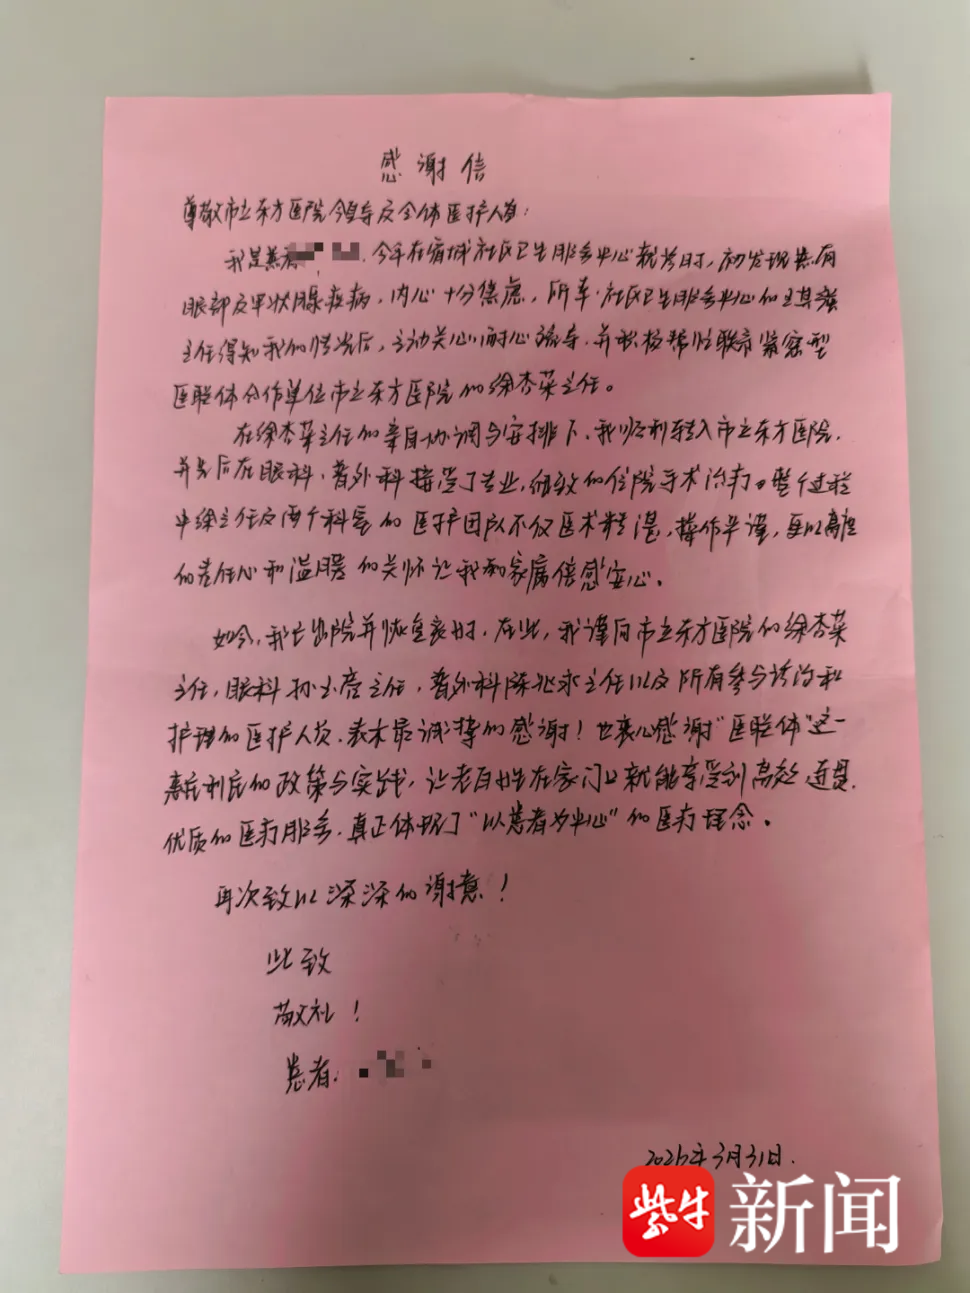 感谢信
尊敬市立东方医院领导及全体医护人员：
我是患者 今年在宿城社区卫生服务中心就诊时，初发现患有
眼部及甲状腺疾病，内心十分焦虑，所幸社区卫生服务中心的王其
主任得知我的情况后，主动关心耐心疏导，并积极帮忙联系紧密型
医联体合作单位市立东方医院的徐杏菜主任。
在徐杏菜主任的亲自协调与安排下，我顺利转入市立东方医院，
并先后在眼科，普外科接受了专业，细致的住院手术治疗。整个过程
中徐主任及两个科室的医护团队不仅医术精湛，操作严谨，更以高度
的责任心和温暖的关怀让我和家属倍感安心。
如今，我已出院并恢复良好，在此，我谨向市立东方医院的徐杏菜
主任，眼科孙 主任，普外科陈 主任以及所有参与诊治和
护理的医护人员，表示最诚挚的感谢！也衷心感谢“医联体”这一
惠民利民的政策与实践，让老百姓在家门口就能享受到高效 连贯
优质的医疗服务，真正体现了“以患者为中心”的医疗理念。
再次致以深深的谢意！
此致
敬礼！
患者：
2026年3月31日.
紫牛新闻